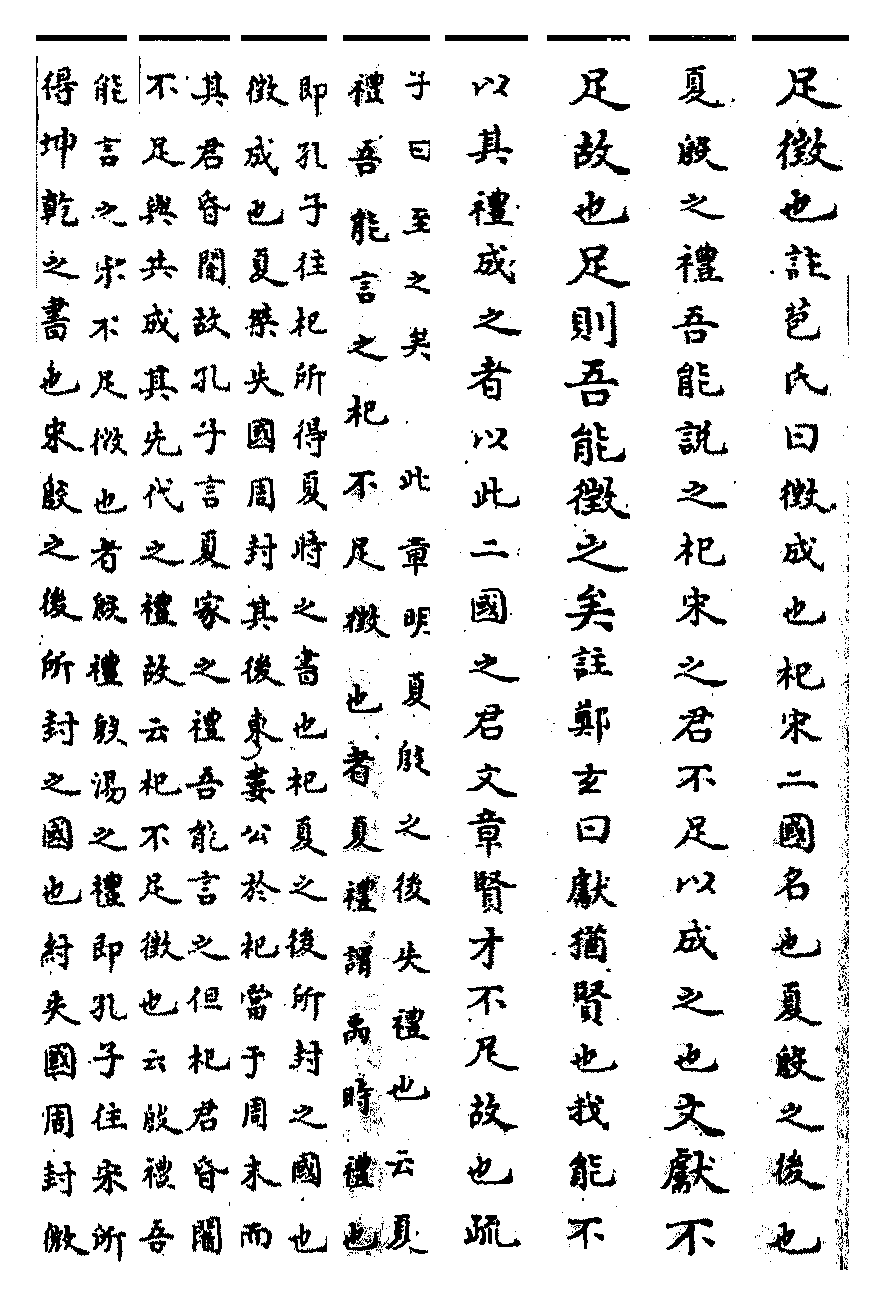 足徵也註苞氏曰徵成也杞宋二國名也夏殷之後也
夏殷之禮吾能說之杞宋之君不足以成之也文獻不
足故也足則吾能徵之矣註鄭玄曰獻猶賢也我能不
以其禮成之者以此二國之君文章賢才不足故也疏
子曰至之矣 此章明夏殷之後失禮也云夏
禮吾能言之杞不足徵也者夏禮謂禹時禮也
即孔子往杞所得夏時之書也杞夏之後所封之國也
徵成也夏桀失國周封其後東婁公於杞當于周末而
其君昏闇故孔子言夏家之禮吾能言之但杞君昏闇
不足與共成其先代之禮故云杞不足徵也云殷禮吾
能言之宋不足徵也者殷禮殷湯之禮即孔子往宋所
得坤乾之書也宋殷之後所封之國也紂失國周封微